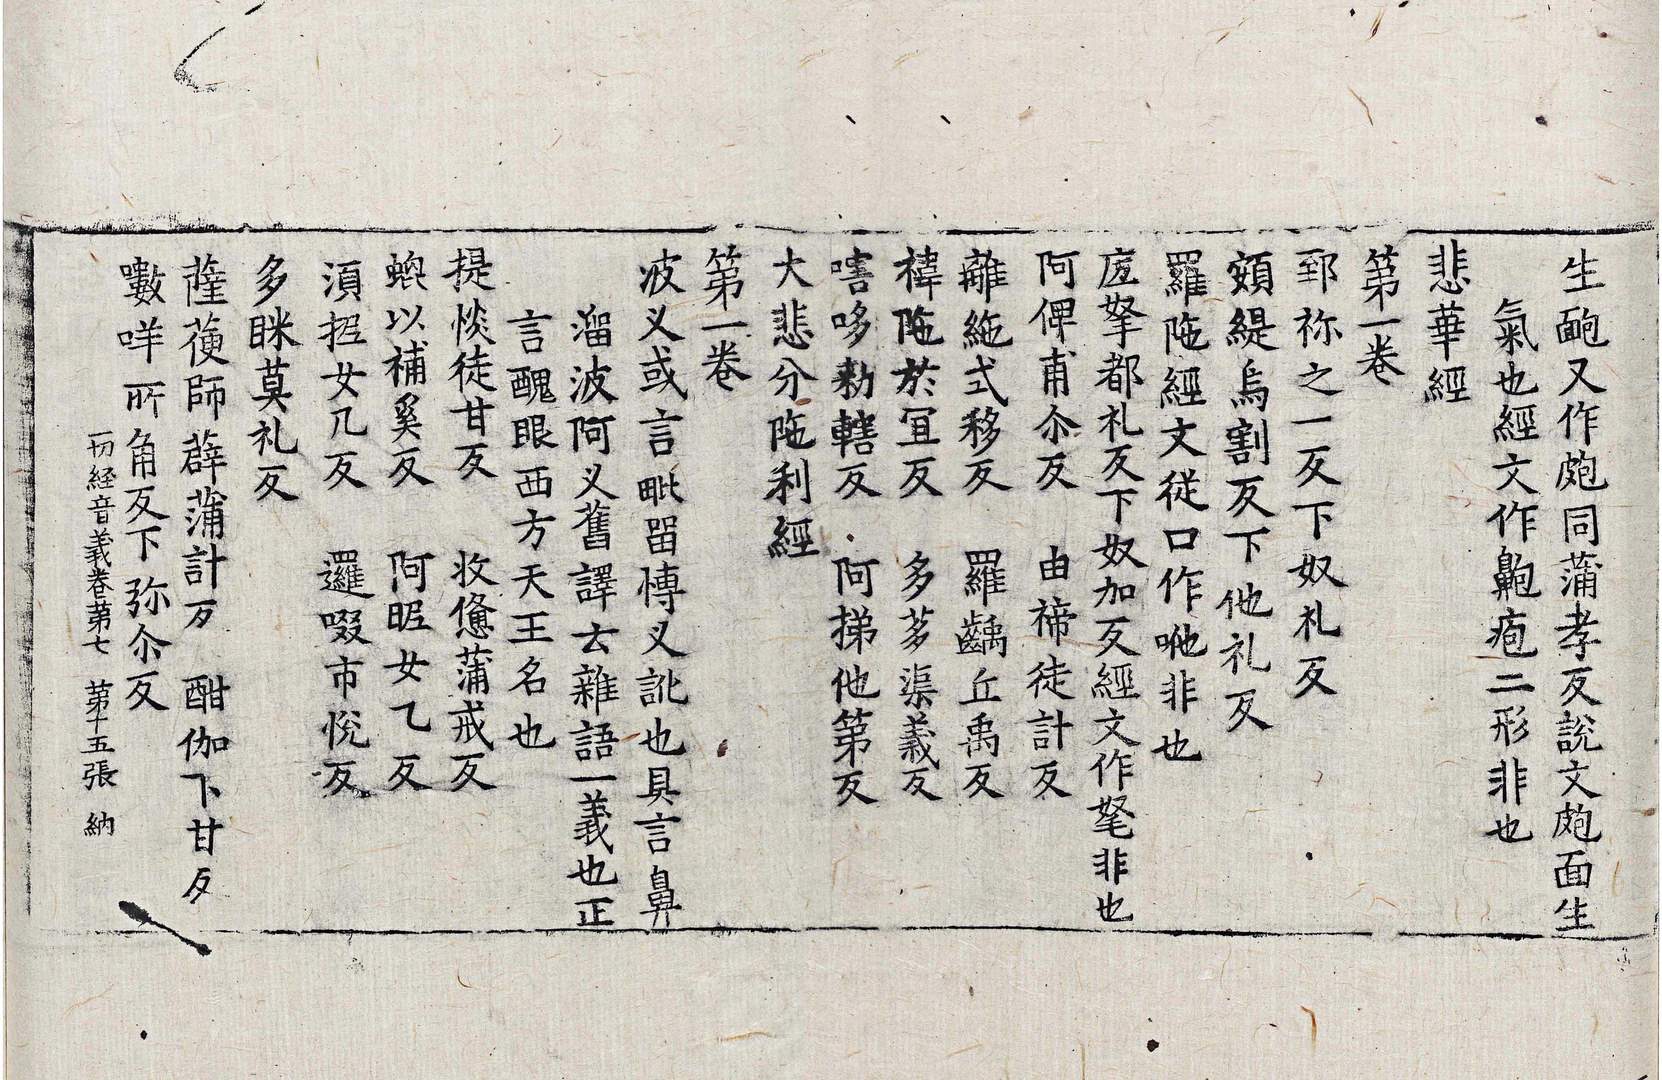 生皰又作皰同蒲孝反說文皰面生
氣也經文作鼿疱二形非也
悲華經
第一卷
郅祢之一反下奴礼反
頞緹烏割反下他礼反
羅陁經文従口作哋非也
庢拏都礼反下奴加反經文作毦非也
阿俾甫尒反　由禘徒計反
離絁式移反　羅齲丘禹反
禕陁於冝反　多茤渠義反
嗐哆勑轄反　阿挮他第反
大悲分陁利經
第一卷
波义或言毗留愽义訛也具言鼻
溜波阿义舊譯云雜語一義也正
言醜眼西方天王名也
提惔徒甘反　收憊蒲戒反
螕以補奚反　阿昵女乙反
湏抳女几反　邏啜市悅反
多眯莫礼反
薩蓃師薜蒲計反　酣伽下甘反
囆咩所角反下弥尒反
一切経音義卷第七　第十五張　納